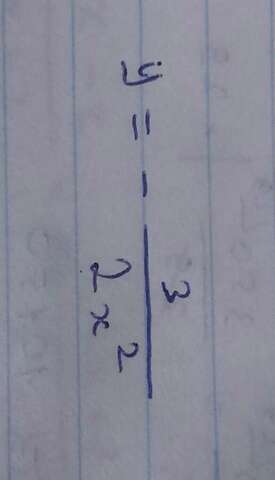 y = - \frac{3}{2x^2}